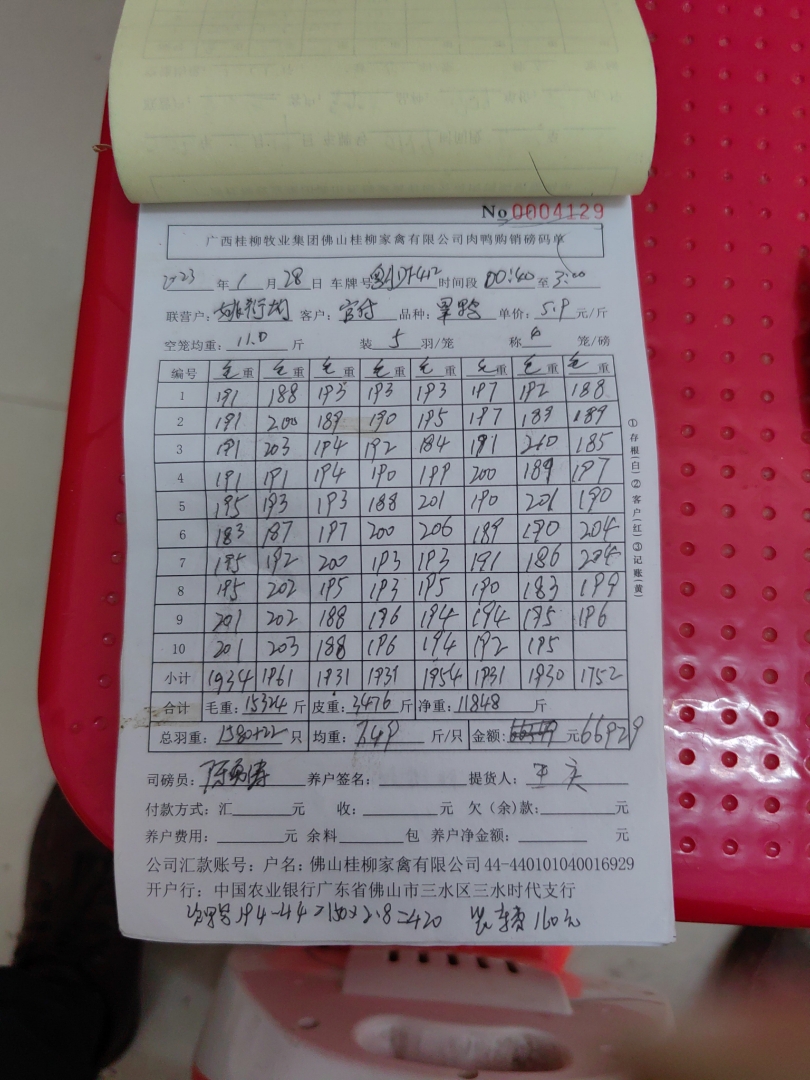 No 0004129
广西桂柳牧业集团佛山桂柳家禽有限公司肉鸭购销磅码单
2023年1月28日 车牌号 时间段 00:40 至 3:00
联营户: 客户: 品种: 单价: 5.9 元/斤
空笼均重: 11.0 斤 装 5 羽/笼 称 笼/磅
编号 毛重 毛重 毛重 毛重 毛重 毛重 毛重 毛重
1 191 188 193 193 193 197 192 188
2 191 200 189 190 195 197 189 189
3 191 203 194 192 184 191 210 185
4 191 191 194 190 199 200 189 197
5 195 193 193 188 201 190 201 190
6 183 187 197 200 206 189 190 204
7 195 192 200 193 193 191 186 204
8 195 202 195 193 195 190 183 199
9 201 202 188 196 194 194 195 196
10 201 203 188 196 194 192 195
小计 1934 1961 1931 1931 1954 1931 1930 1752
合计 毛重: 15324 斤 皮重: 3476 斤 净重: 11848 斤
总羽重: 1580+22 只 均重: 7.49 斤/只 金额: 元 66929
司磅员: 养户签名: 提货人:
付款方式: 汇 元 收: 元 欠(余)款: 元
养户费用: 元 余料 包 养户净金额: 元
公司汇款账号: 户名: 佛山桂柳家禽有限公司 44-440101040016929
开户行: 中国农业银行广东省佛山市三水区三水时代支行
194-44=150×2.8=420 160元
①存根(白)②客户(红)③记账(黄)